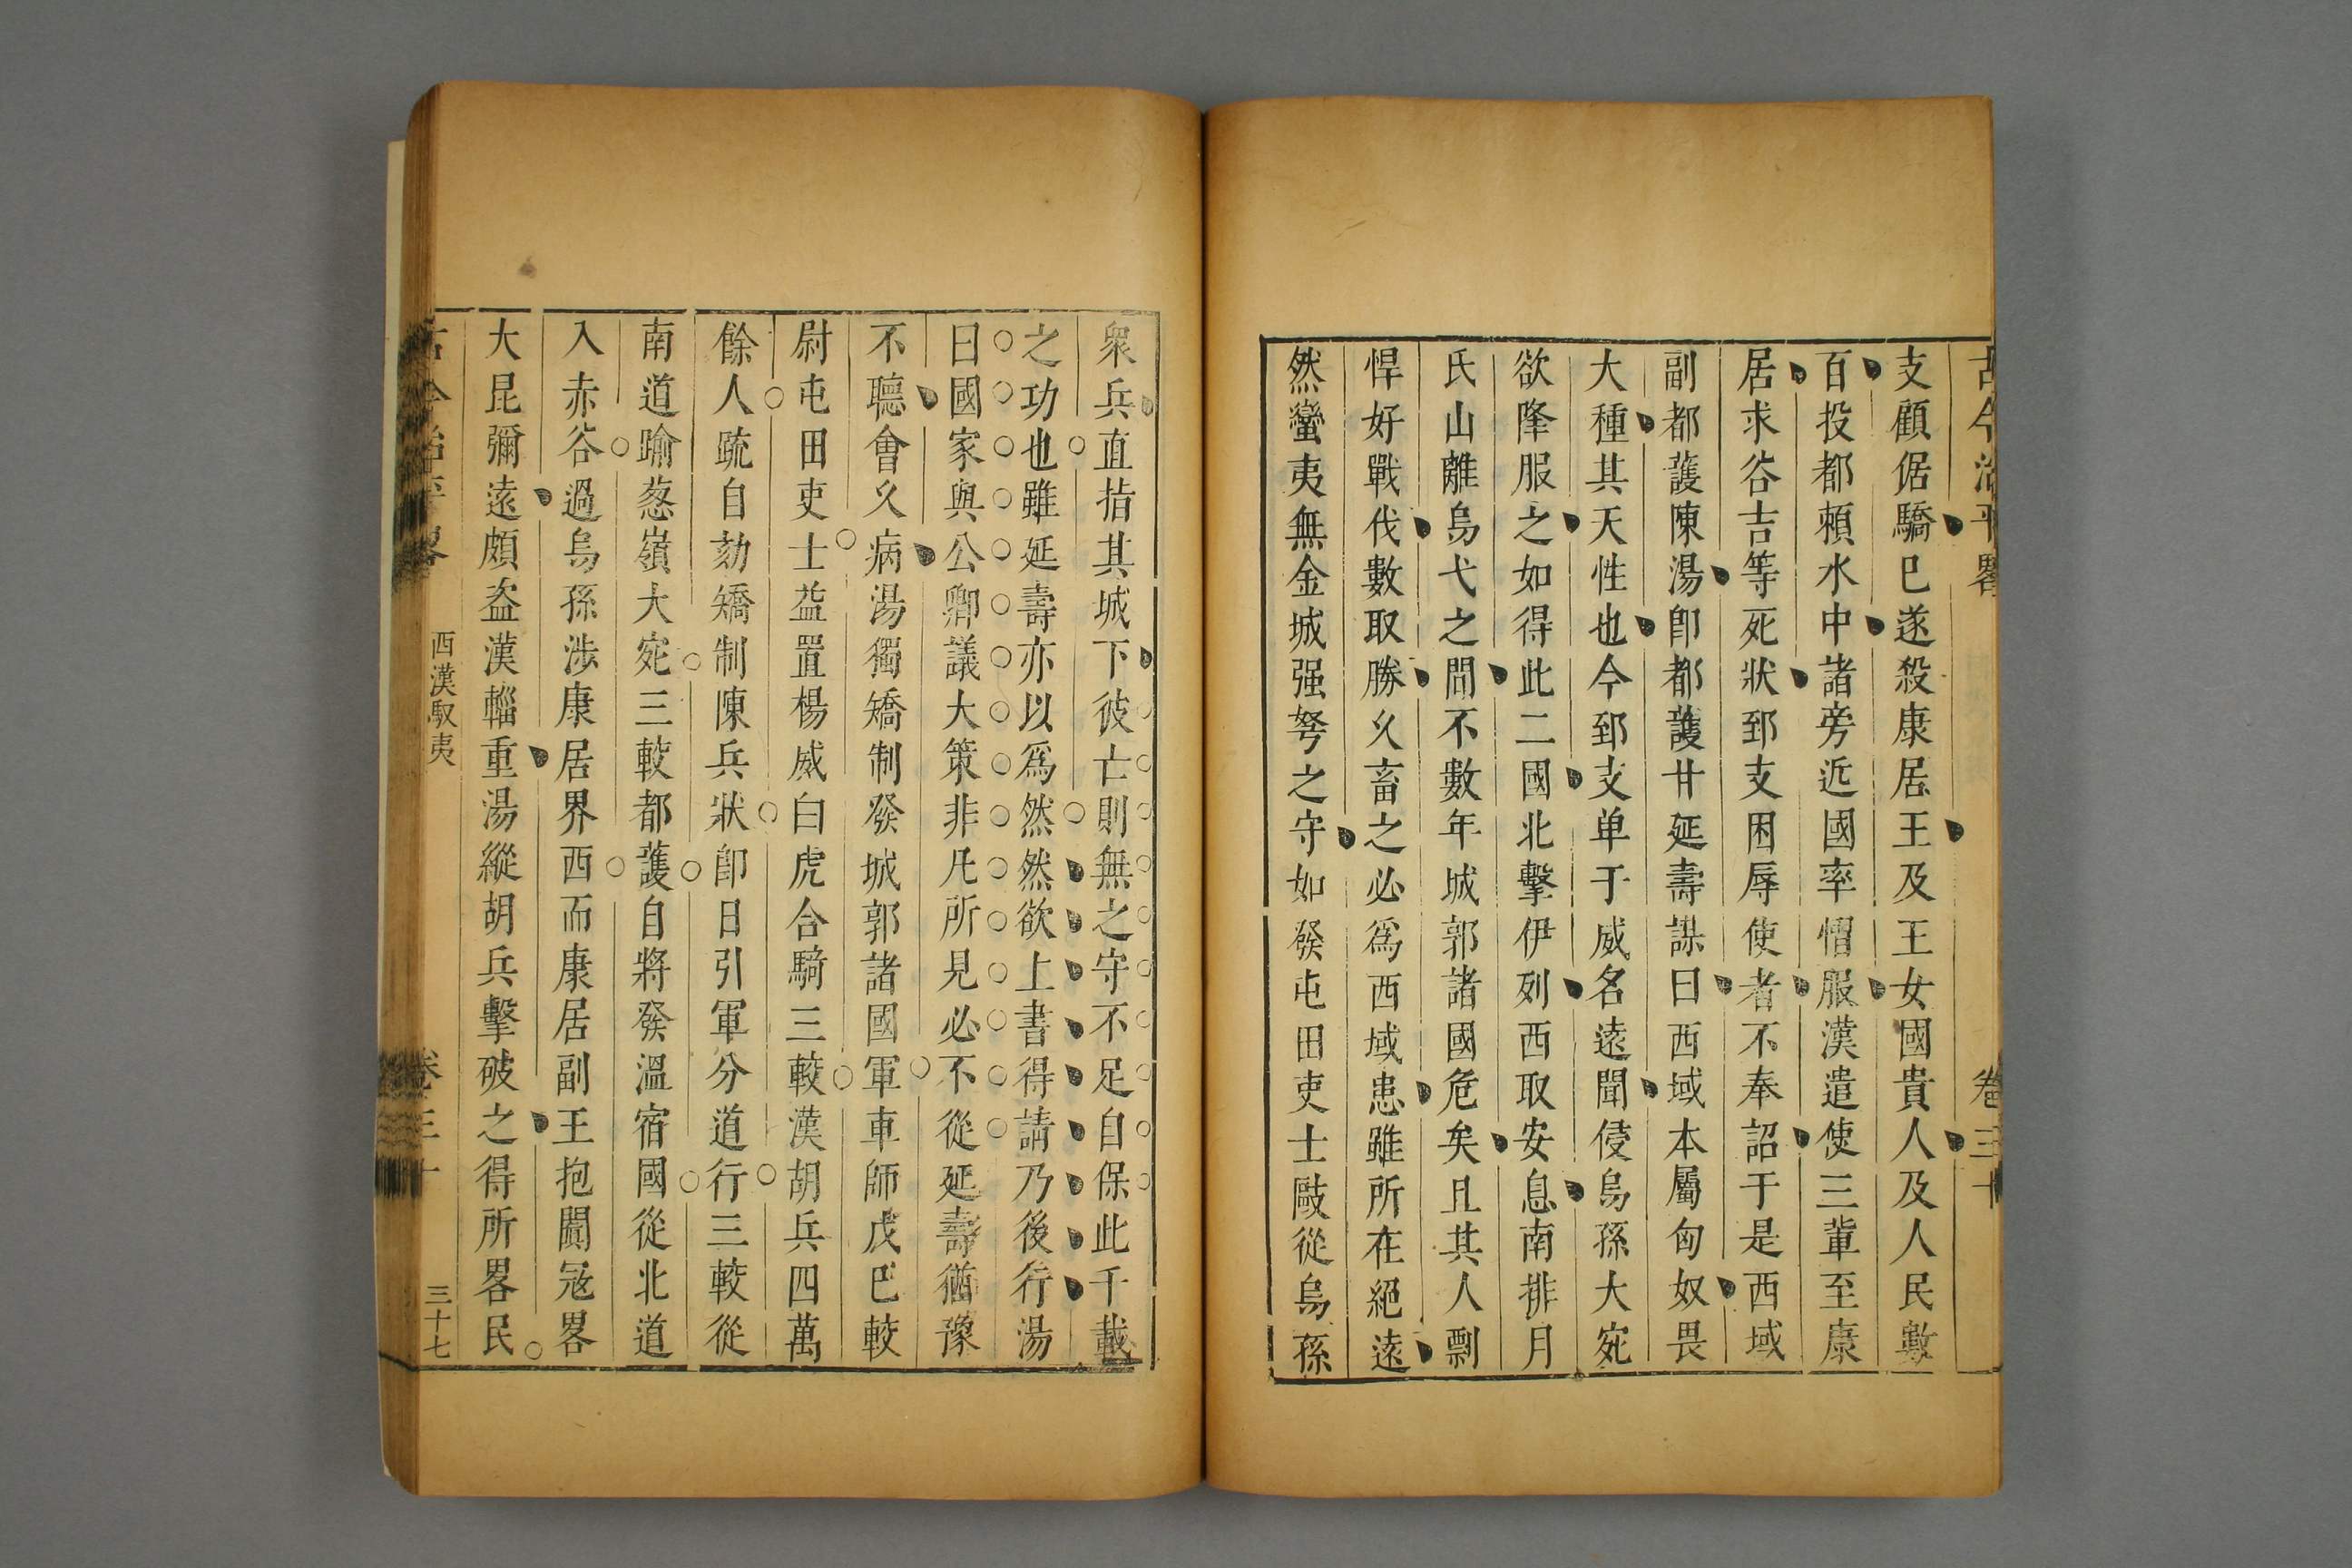 古今治平畧 卷三十
支顧倨驕已遂殺康居王及王女國貴人及人民數
百投都賴水中諸旁近國率慴服漢遣使三輩至康
居求谷吉等死狀郅支困辱使者不奉詔于是西域
副都護陳湯卽都護甘延壽謀曰西域本屬匈奴畏
大種其天性也今郅支单于威名遠聞侵烏孫大宛
欲降服之如得此二國北擊伊列西取安息南排月
氏山離烏弋之間不數年城郭諸國危矣且其人剽
悍好戰伐數取勝久畜之必爲西域患雖所在絕遠
然蠻夷無金城强弩之守如發屯田吏士敺從烏孫
衆兵直指其城下彼亡則無之守不足自保此千載
之功也雖延壽亦以爲然然欲上書得請乃後行湯
曰國家與公卿議大策非凡所見必不從延壽猶豫
不聽會久病湯獨矯制發城郭諸國軍車師戊巳較
尉屯田吏士益置楊威白虎合騎三較漢胡兵四萬
餘人疏自劾矯制陳兵狀卽日引軍分道行三較從
南道踰葱嶺大宛三較都護自將發溫宿國從北道
入赤谷過烏孫涉康居界西而康居副王抱闐冦畧
大昆彌遠頗盜漢輜重湯縱胡兵擊破之得所畧民
古今治平畧 西漢馭夷 卷三十 三十七